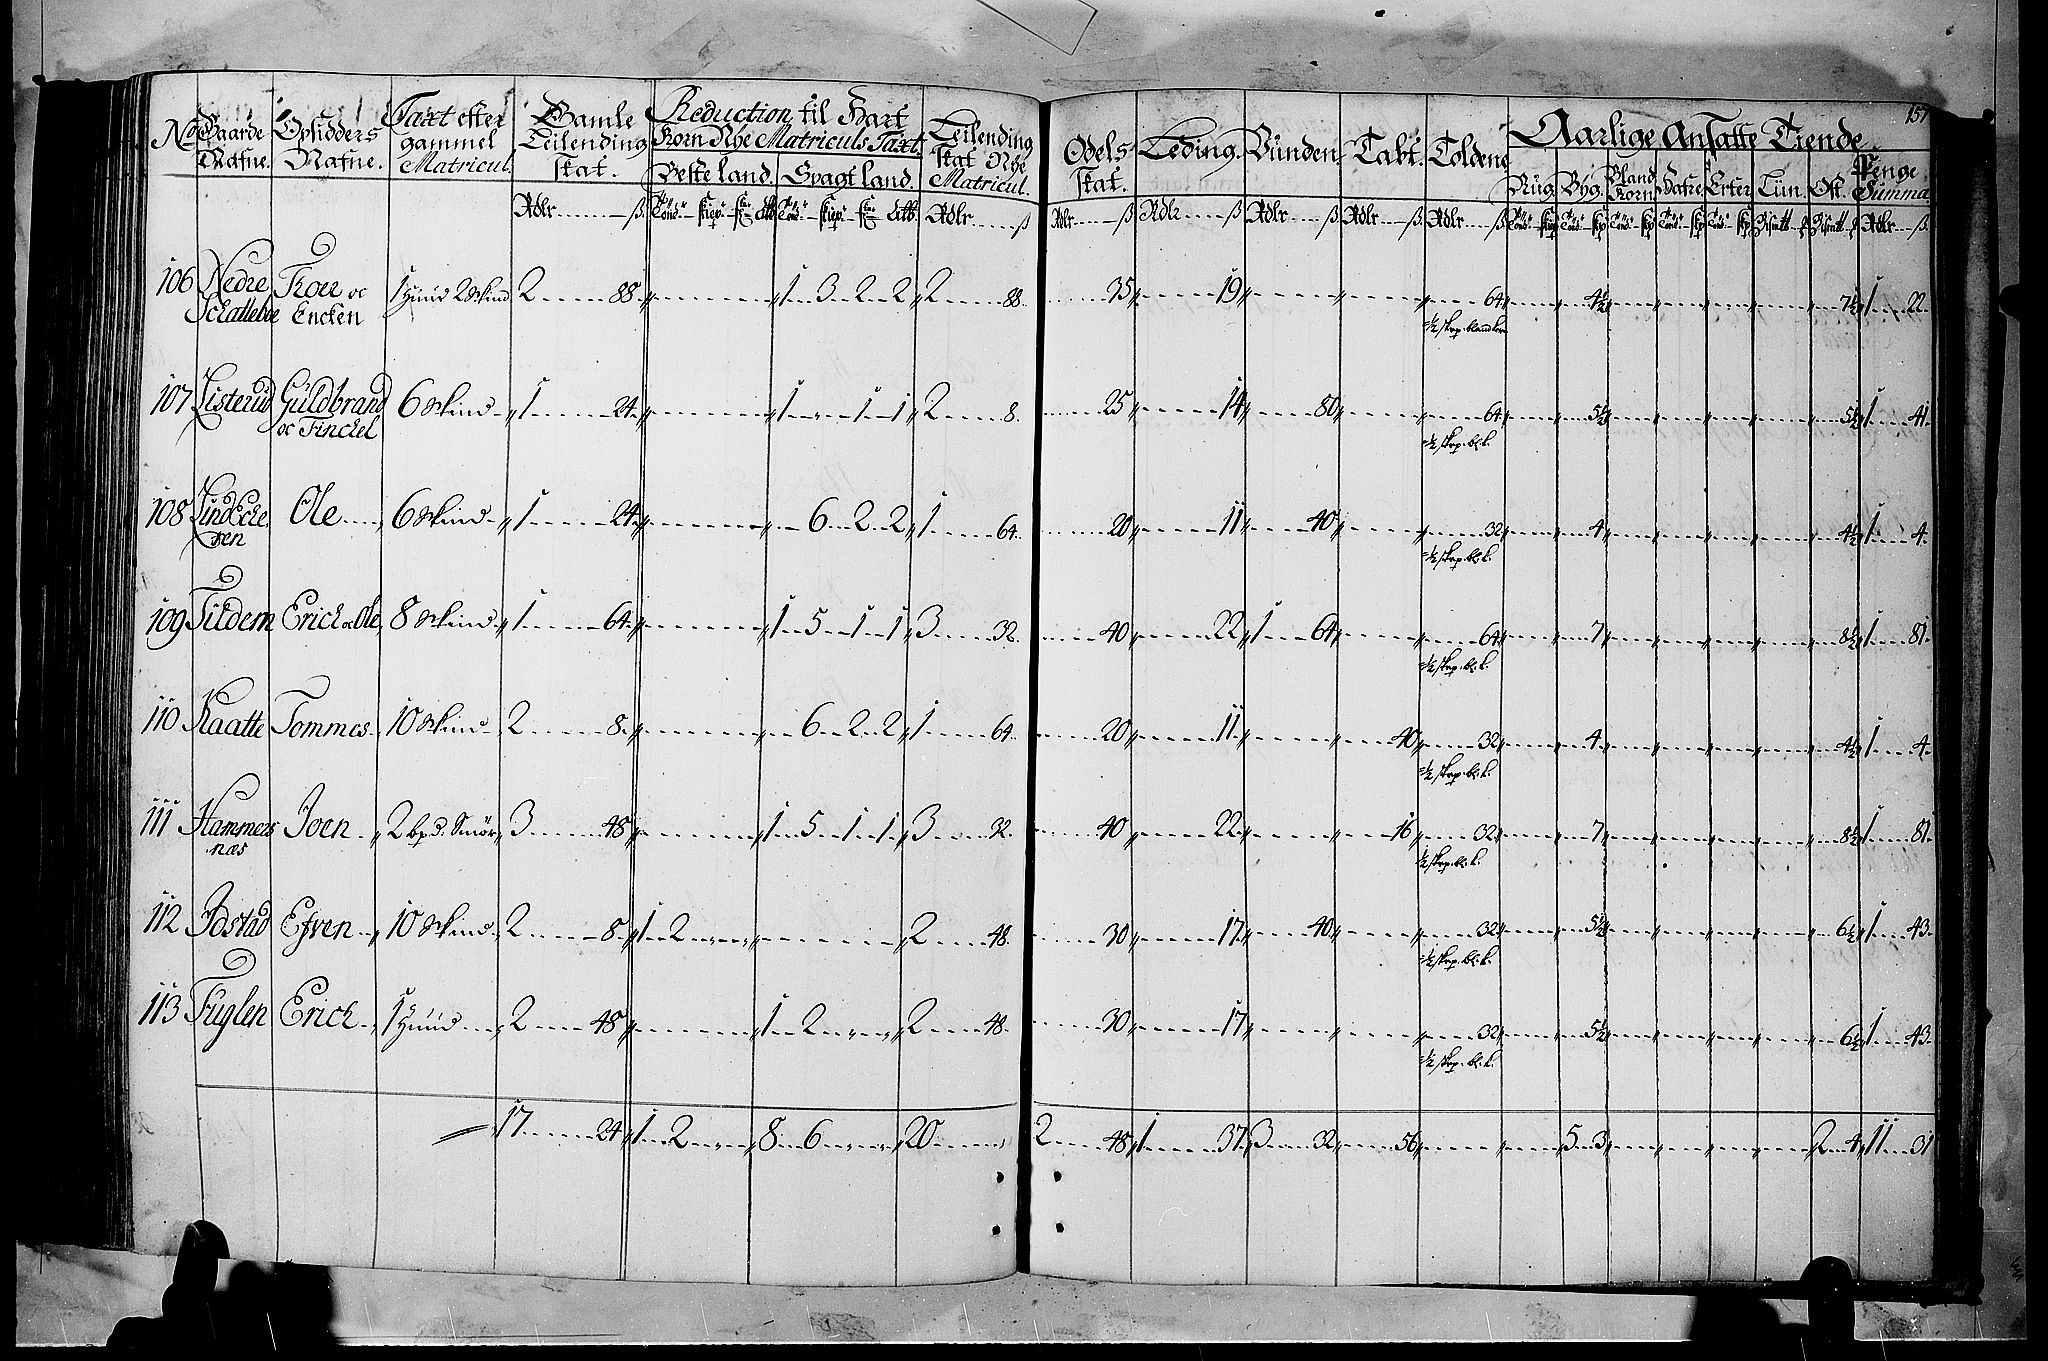 157
No Gaarde Nafne. Opsidders Nafne. Taxt efter gammel Matricul. Gamle Leilending skat. Reduction til Hart Korn Nye Matriculs Taxt. Leilending skat Nye Matricul. Odels skat. Leding. Vunden. Tabt. Toldene Aarlige Ansatte Tiende.
Beste land. Svagt land. Rug. Byg. Bland Korn Hafre. Erter Lin. Ost. Penge Summa
Rdlr ß Rdlr ß Rdlr ß Rdlr ß Rdlr ß Rdlr ß Rdlr ß Rdlr ß
106 Nedre Schallebøe Troer oc Encken 1 Huud 2 Skind 2 88 1 3 2 2 2 88. 35 19 64 4½ 7½ 1 22.
½ skp. blandkorn
107 Listerud Guldbrand oc Finckel 6 Skind 1 24 1 1 1 2 8. 25 14 80 64 5½ 5½ 1 41.
½ skp. bl. k.
108 Lindeche Ole 6 Skind 1 24 6 2 2 1 64. 20 11 40 32 4 4½ 1 4.
½ skp. bl. k.
109 Tildem Erich oc Ole 8 Skind 1 64 1 5 1 1 3 32. 40 22 1 64 64 7 8½ 1 81.
½ skp. bl. k.
110 Kaatte Tommes 10 Skind 2 8. 6 2 2 1 64. 20 11 40 32 4 4½ 1 4.
½ skp. bl. k.
111 Hammers næs Joen 2 bpd. Smör 3 48 1 5 1 1 3 32. 40 22 16 32 7 8½ 1 81
½ skp. bl. k.
112 Jdstad Efven 10 Skind 2 8 1 2 2 48. 30 17 40 32 5½ 6½ 1 43.
½ skp. bl. k.
113 Fuglen Erich 1 Huud 2 48 1 2 2 48. 30 17 32 5½ 6½ 1 43.
½ skp. bl. k.
17 24 1 2 8 6 20 2 48 1 37 3 32 56 5 3 2 4 11 31